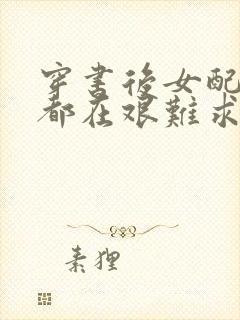 穿書後女配
都在艱難求
素狸